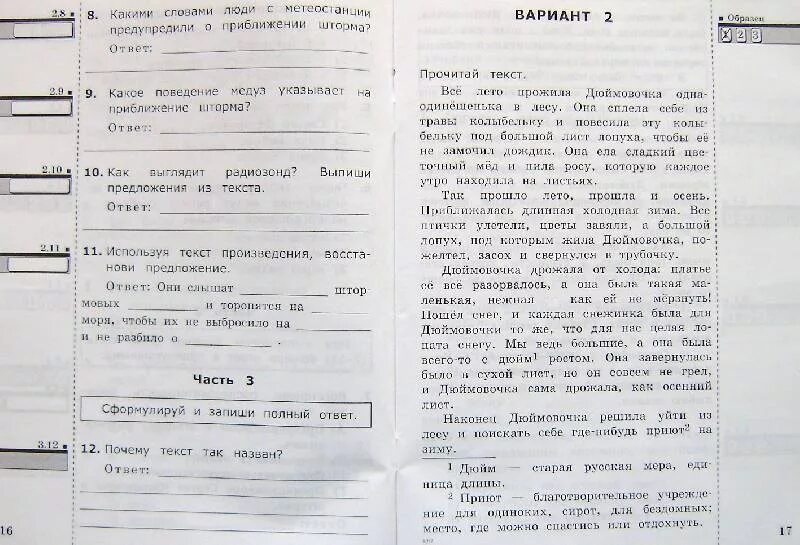 2.8
8. Какими словами люди с метеостанции
предупредили о приближении шторма?
Ответ:
2.9
9. Какое поведение медуз указывает на
приближение шторма?
Ответ:
2.10
10. Как выглядит радиозонд? Выпиши
предложения из текста.
Ответ:
2.11
11. Используя текст произведения, восста-
нови предложение.
Ответ: Они слышат ____________ штор-
мовых ____________ и торопятся на ________
моря, чтобы их не выбросило на ____________
и не разбило о ____________ .
Часть 3
Сформулируй и запиши полный ответ.
3.12
12. Почему текст так назван?
Ответ:
16
ВАРИАНТ 2
Образец
1 2 3
Прочитай текст.
Всё лето прожила Дюймовочка одна-
одинёшенька в лесу. Она сплела себе из
травы колыбельку и повесила эту колы-
бельку под большой лист лопуха, чтобы её
не замочил дождик. Она ела сладкий цве-
точный мёд и пила росу, которую каждое
утро находила на листьях.
Так прошло лето, прошла и осень.
Приближалась длинная холодная зима. Все
птички улетели, цветы завяли, а большой
лопух, под которым жила Дюймовочка, по-
желтел, засох и свернулся в трубочку.
Дюймовочка дрожала от холода: платье
её всё разорвалось, а она была такая ма-
ленькая, нежная — как ей не мёрзнуть!
Пошёл снег, и каждая снежинка была для
Дюймовочки то же, что для нас целая ло-
пата снегу. Мы ведь большие, а она была
всего-то с дюйм¹ ростом. Она завернулась
было в сухой лист, но он совсем не грел,
и Дюймовочка сама дрожала, как осенний
лист.
Наконец Дюймовочка решила уйти из
лесу и поискать себе где-нибудь приют² на
зиму.
¹ Дюйм — старая русская мера, еди-
ница длины.
² Приют — благотворительное учрежде-
ние для одиноких, сирот, для бездомных;
место, где можно спастись или отдохнуть.
17